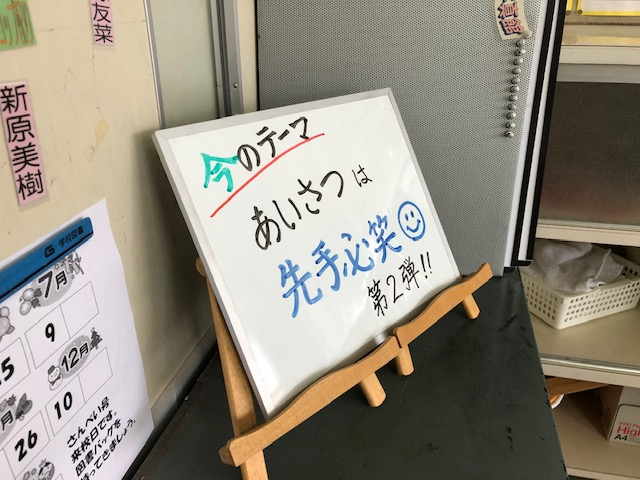 今のテーマ
あいさつは
先手必笑
第2弾!!
友菜
新原美樹
G 学校図書
7月
9
12月
10
26
さんべい号
来校日です。
図書バックを
持ってきましょう。
High
A4